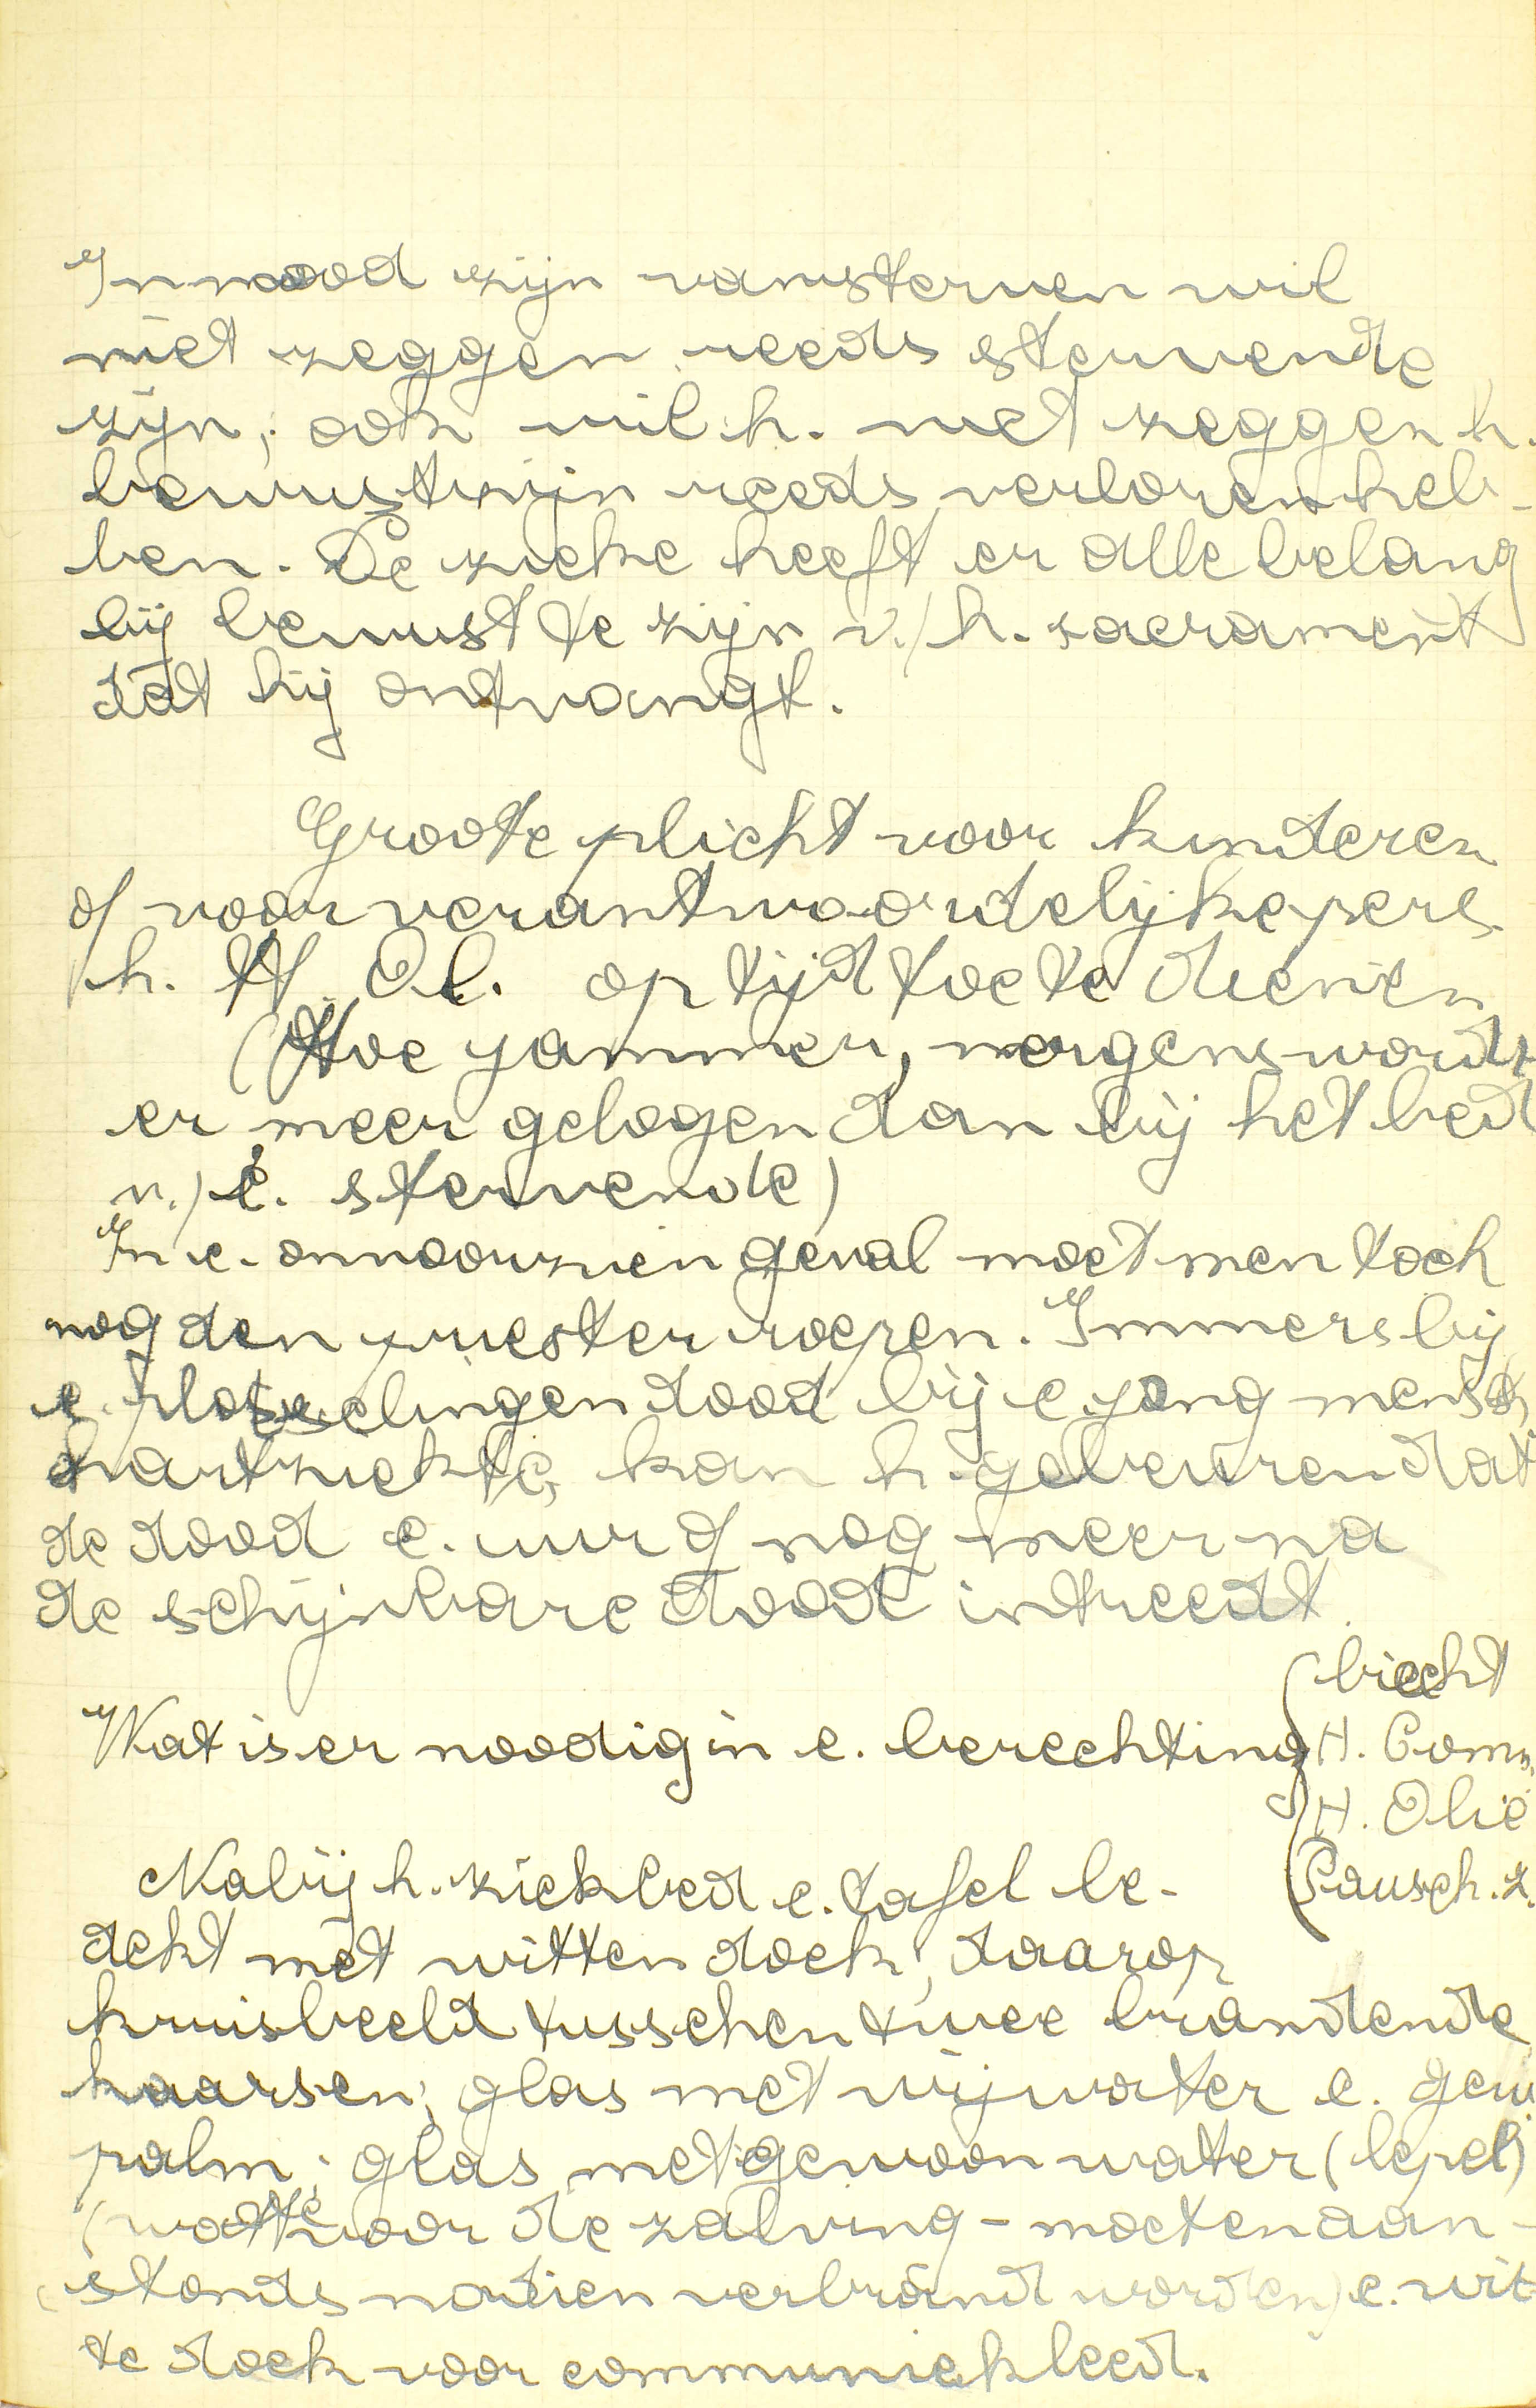 In nood zijn van sterven wil
niet zeggen reeds stervende
zijn; ook wil h. niet zeggen h.
bewustzijn reeds verloren heb-
ben. De zieke heeft er alle belang
bij bewust te zijn v./h. sacrament
dat hij ontvangt.
Groote plicht voor kinderen
of voor verantwoordelijke pers.
h. H. Ol. op tijd toe te dienen
(Hoe jammer, nergens wordt
er meer gelogen dan bij het bed
v./e. stervende)
In e. onvoorzien geval moet men toch
nog den priester roepen. Immers bij
e. plotselingen dood bij e. jong mensch,
hartziekte, kan h. gebeuren dat
de dood e. uur of nog meer na
de schijnbare dood intreedt.
Wat is er noodig in e. berechting
biecht
H. Comm.
H. Olie
Pausch. z.
Nabij h. ziekbed e. tafel be-
dekt met witten doek; daarop
kruisbeeld tusschen twee brandende
kaarsen; glas met wijwater e. gew.
palm; glas met gewoon water (lepel)
(watte voor de zalving - moeten aan-
stonds nadien verbrand worden) e. wit-
te doek voor communiekleed.